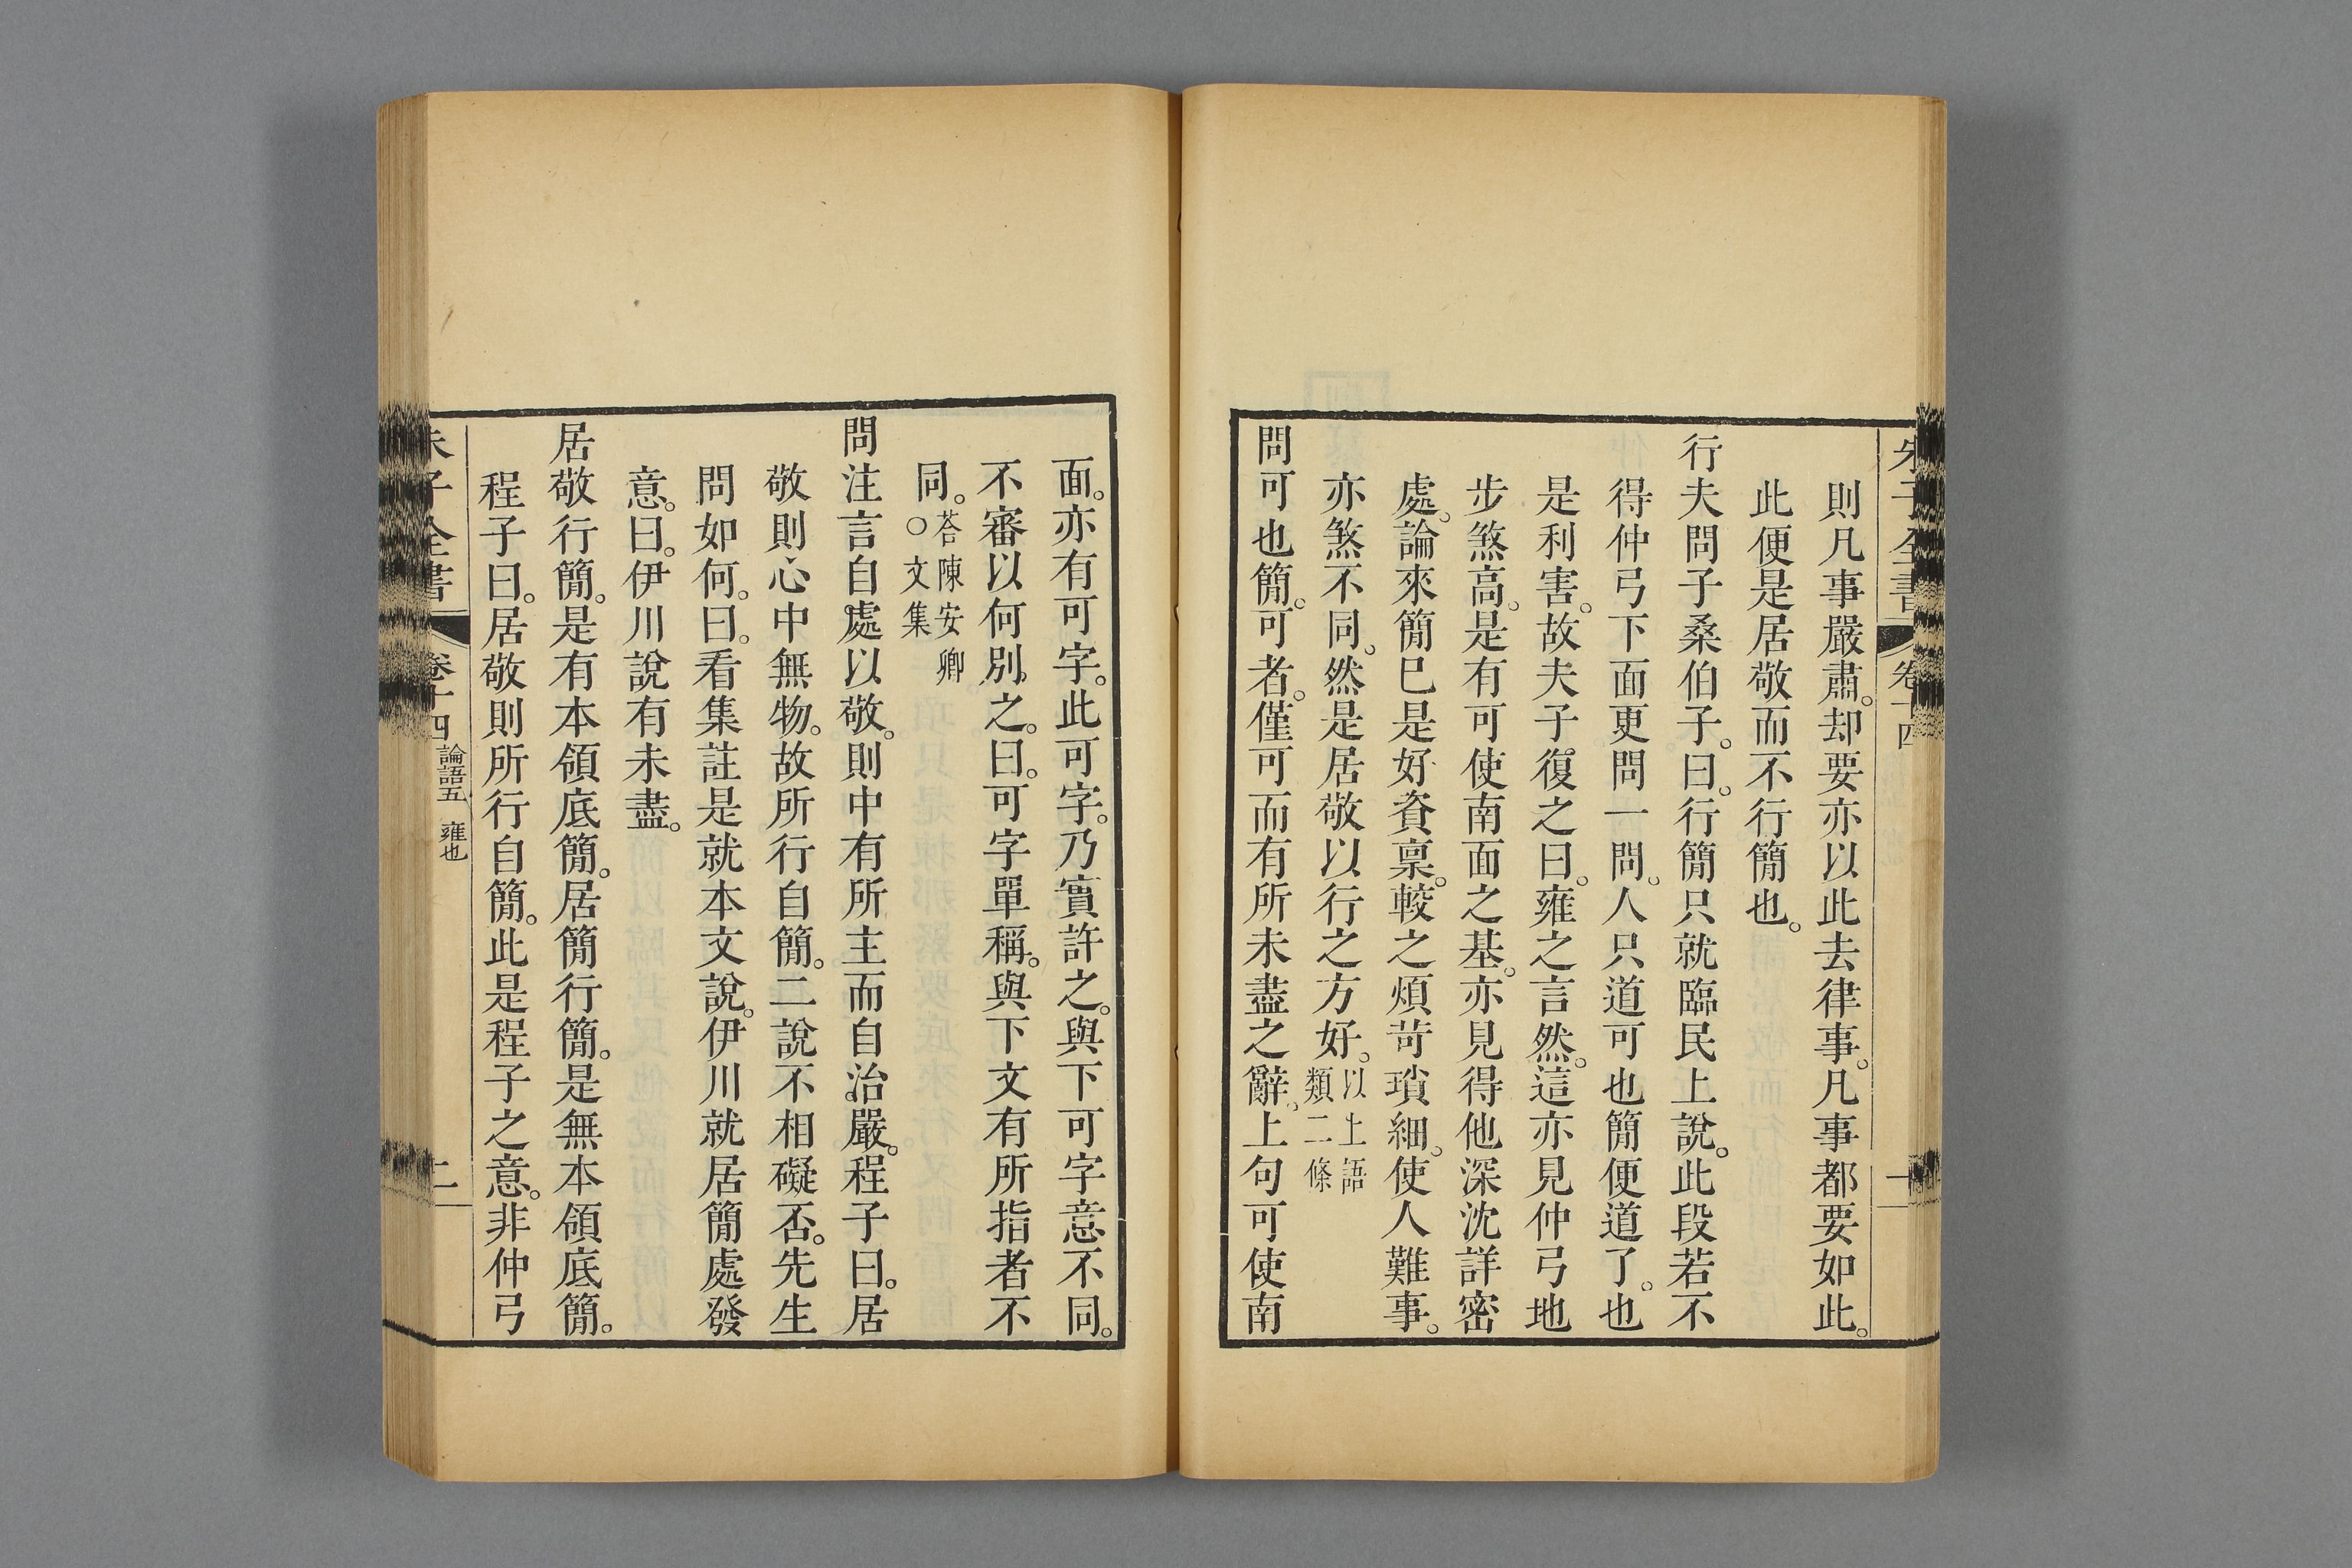 朱子全書 卷十四 一
則凡事嚴肅。却要亦以此去律事。凡事都要如此。
此便是居敬而不行簡也。
行夫問子桑伯子。曰。行簡只就臨民上說。此段若不
得仲弓下面更問一問。人只道可也簡便道了。也
是利害。故夫子復之曰。雍之言然。這亦見仲弓地
步煞高。是有可使南面之基。亦見得他深沈詳密
處。論來簡已是好資稟。較之煩苛瑣細。使人難事。
亦煞不同。然是居敬以行之方好。以上語類二條
問可也簡。可者。僅可而有所未盡之辭。上句可使南
面。亦有可字。此可字。乃實許之。與下可字意不同。
不審以何別之。曰。可字單稱。與下文有所指者不
同。答陳安卿○文集
問注言自處以敬。則中有所主而自治嚴。程子曰。居
敬則心中無物。故所行自簡。二說不相礙否。先生
問如何。曰。看集註是就本文說。伊川就居簡處發
意。曰。伊川說有未盡。
居敬行簡。是有本領底簡。居簡行簡。是無本領底簡。
程子曰。居敬則所行自簡。此是程子之意。非仲弓
朱子全書 卷十四 論語五 雍也 二